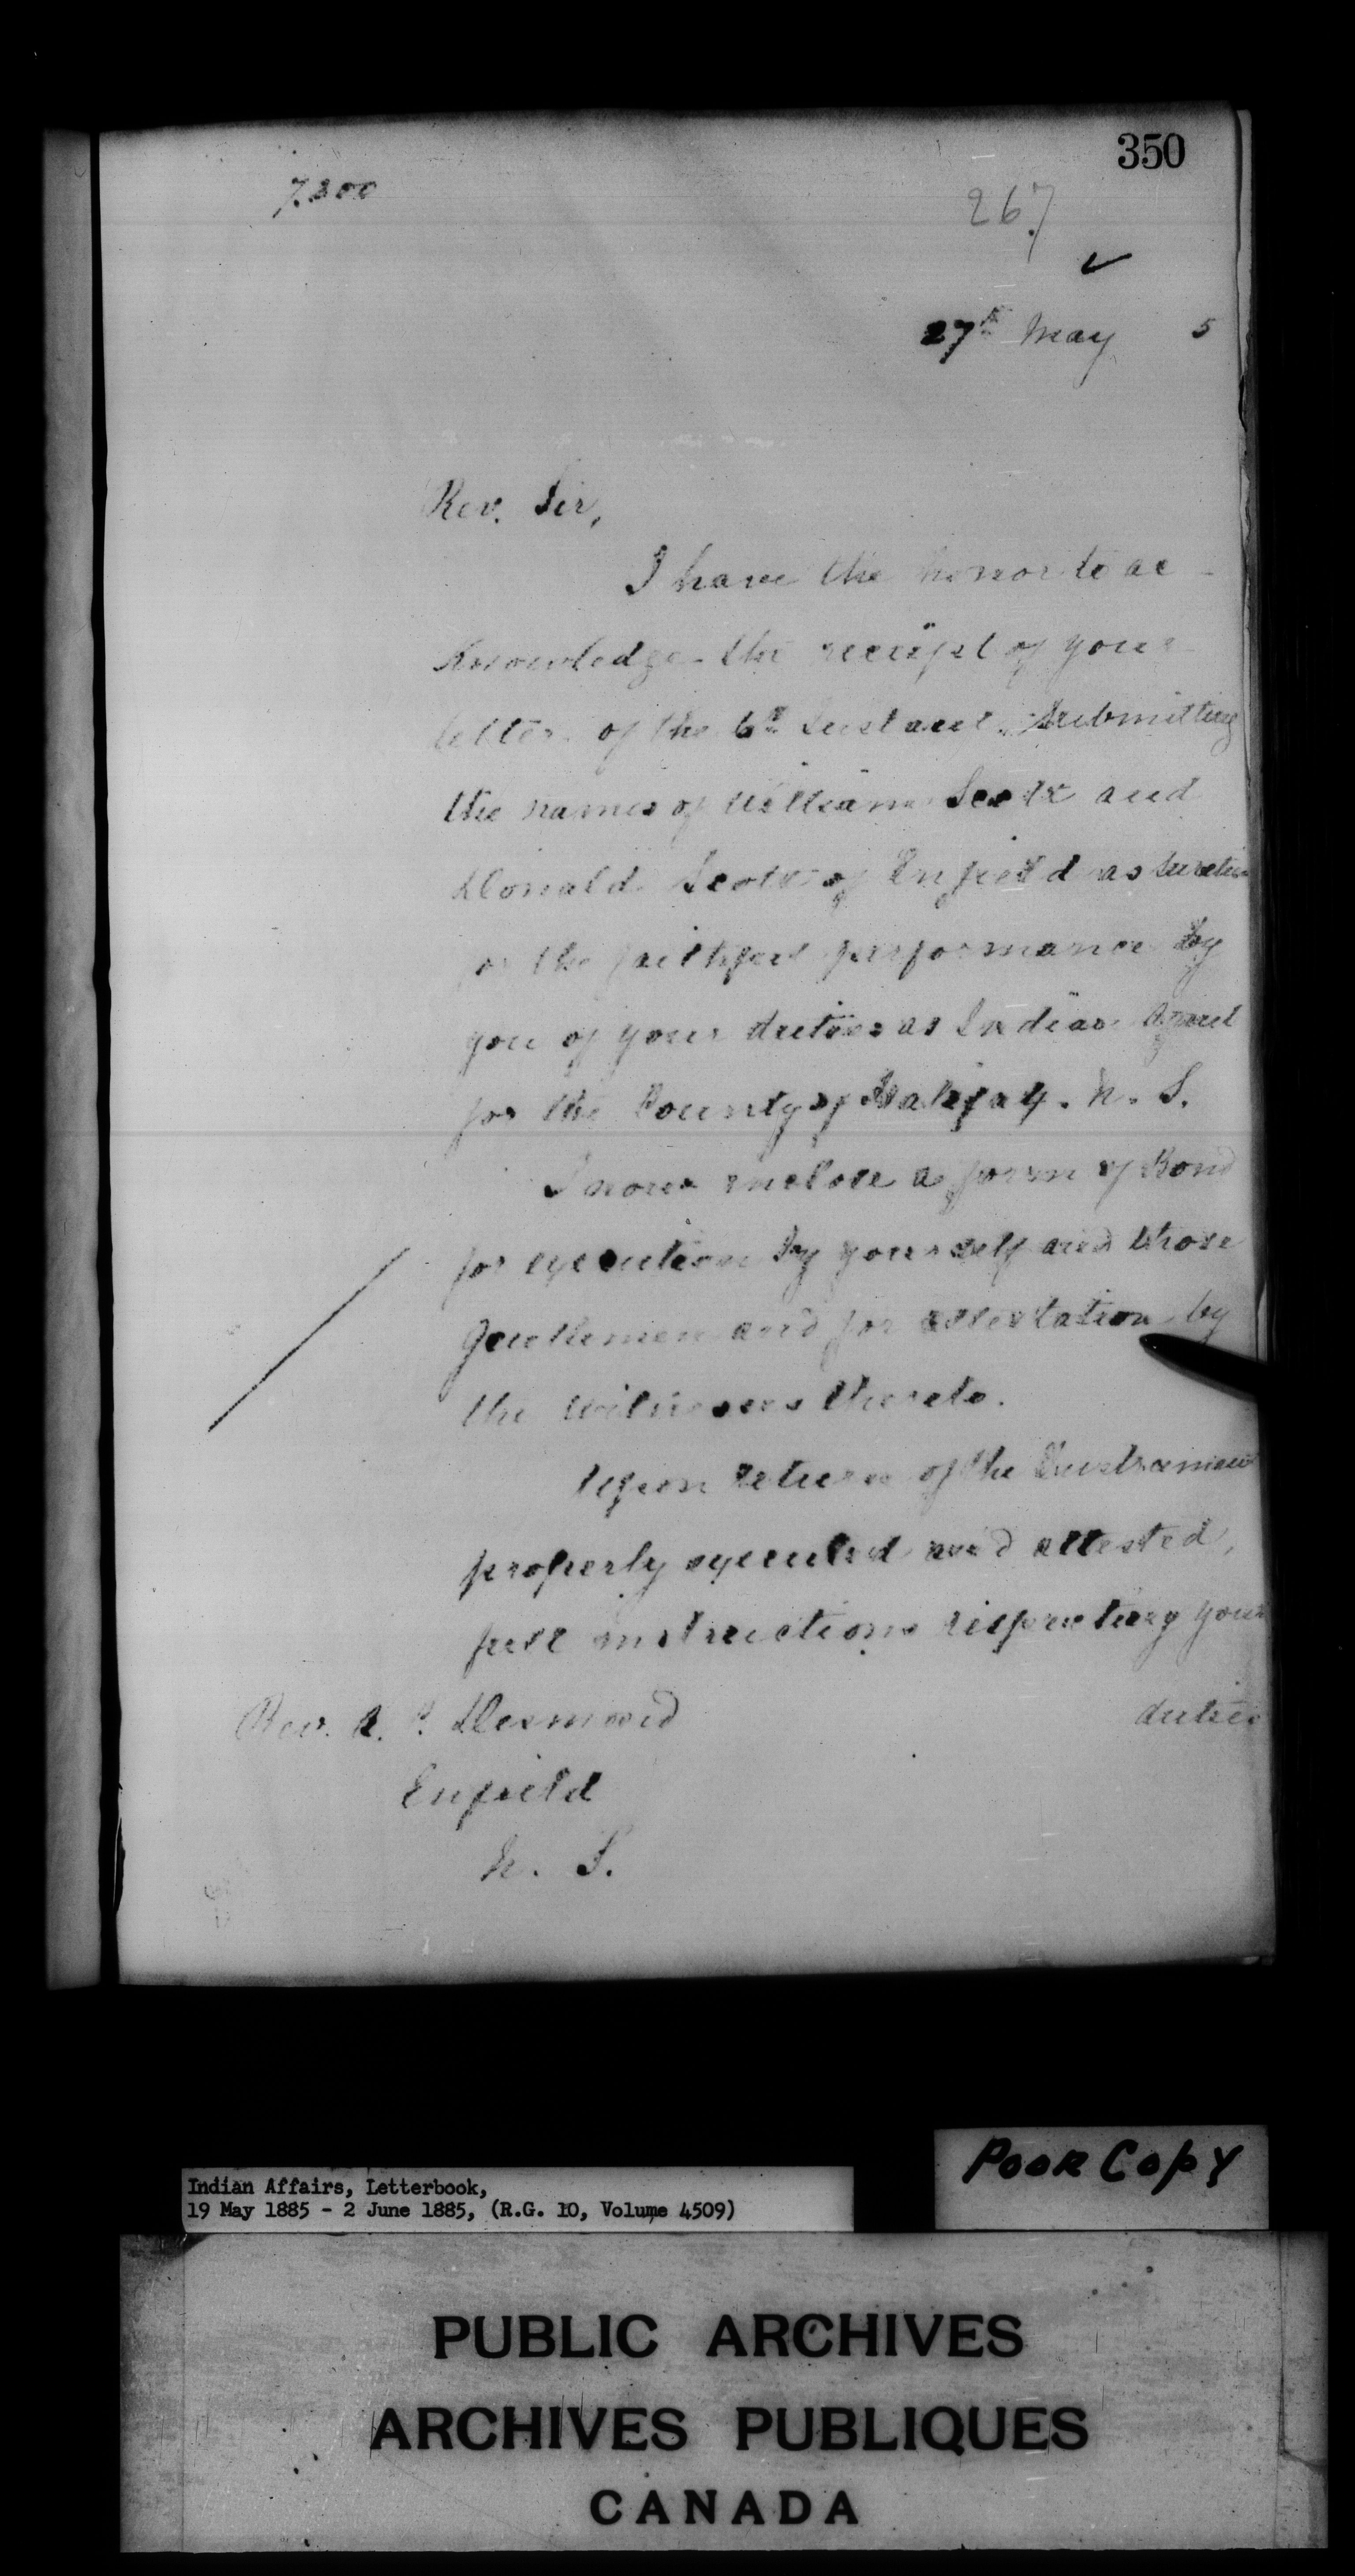 350
7.200
267
27th May 5
Rev. Sir,
I have the honor to ac-
knowledge the receipt of your
letter of the 6th Instant submitting
the names of William Scott and
Donald Scott of Enfield as Sureties
for the faithful performance by
you of your duties as Indian Agent
for the County of Halifax. N. S.
I now enclose a form of Bond
for execution by yourself and those
Gentlemen and for attestation by
the Witnesses thereto.
Upon return of the Instrument
properly executed and attested,
full instructions respecting your
duties
Rev. R. P. Desmond
Enfield
N. S.
POOR COPY
Indian Affairs, Letterbook,
19 May 1885 - 2 June 1885, (R.G. 10, Volume 4509)
PUBLIC ARCHIVES
ARCHIVES PUBLIQUES
CANADA